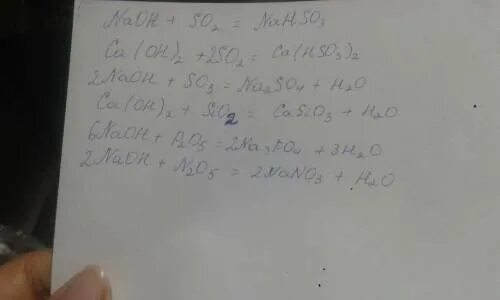 NaOH + SO₂ = NaHSO₃
Ca(OH)₂ + 2SO₂ = Ca(HSO₃)₂
2NaOH + SO₃ = Na₂SO₄ + H₂O
Ca(OH)₂ + SiO₂ = CaSiO₃ + H₂O
6NaOH + P₂O₅ = 2Na₃PO₄ + 3H₂O
2NaOH + N₂O₅ = 2NaNO₃ + H₂O